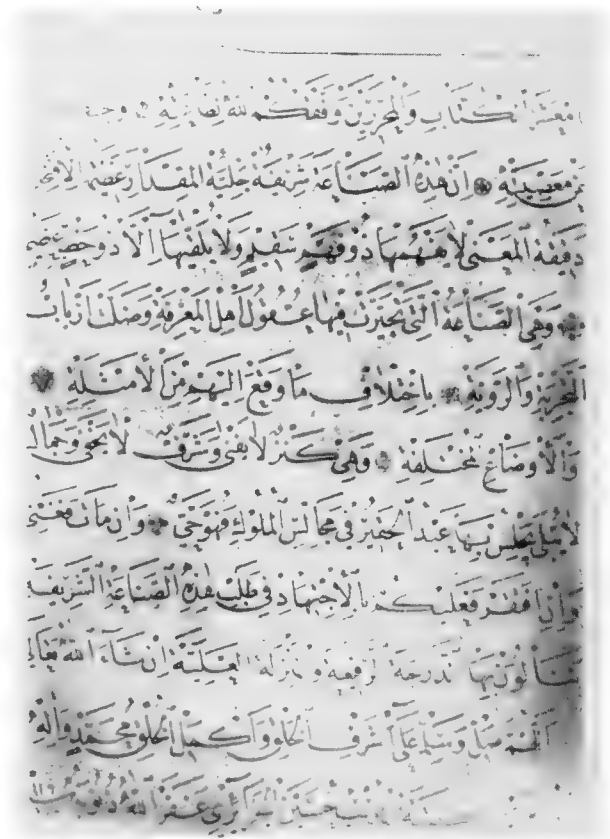 معشر الكتاب والمحررين وفقكم لله
معصيته ان هذه الصناعة شريفة جليلة المقدار
دقيقة المعنى لا يفهمها ذو فهم سقيم ولا يلقيها الا ذو
وهي الصناعة التي تحيرت فيها عقول اهل المعرفة وضلت ارباب
التجربة والروية باختلاف ما وقع اليهم من الأمثلة
والأوضاع مختلفة وهي كنز لا يفنى وشرف لا يخفى وجمال
لا يبلى يجلس بها عبد الحقير في مجالس الملوك فهو حي وان مات
وان افتقر فعليكم بالاجتهاد في طلب هذه الصناعة الشريفة
تنالون بها الدرجة الرفيعة و منزلة العلية ان شاء الله تعالى
اللهم صل وسلم على اشرف الخلق واكمل الخلق محمد واله
حسين غفر الله ذنوبه